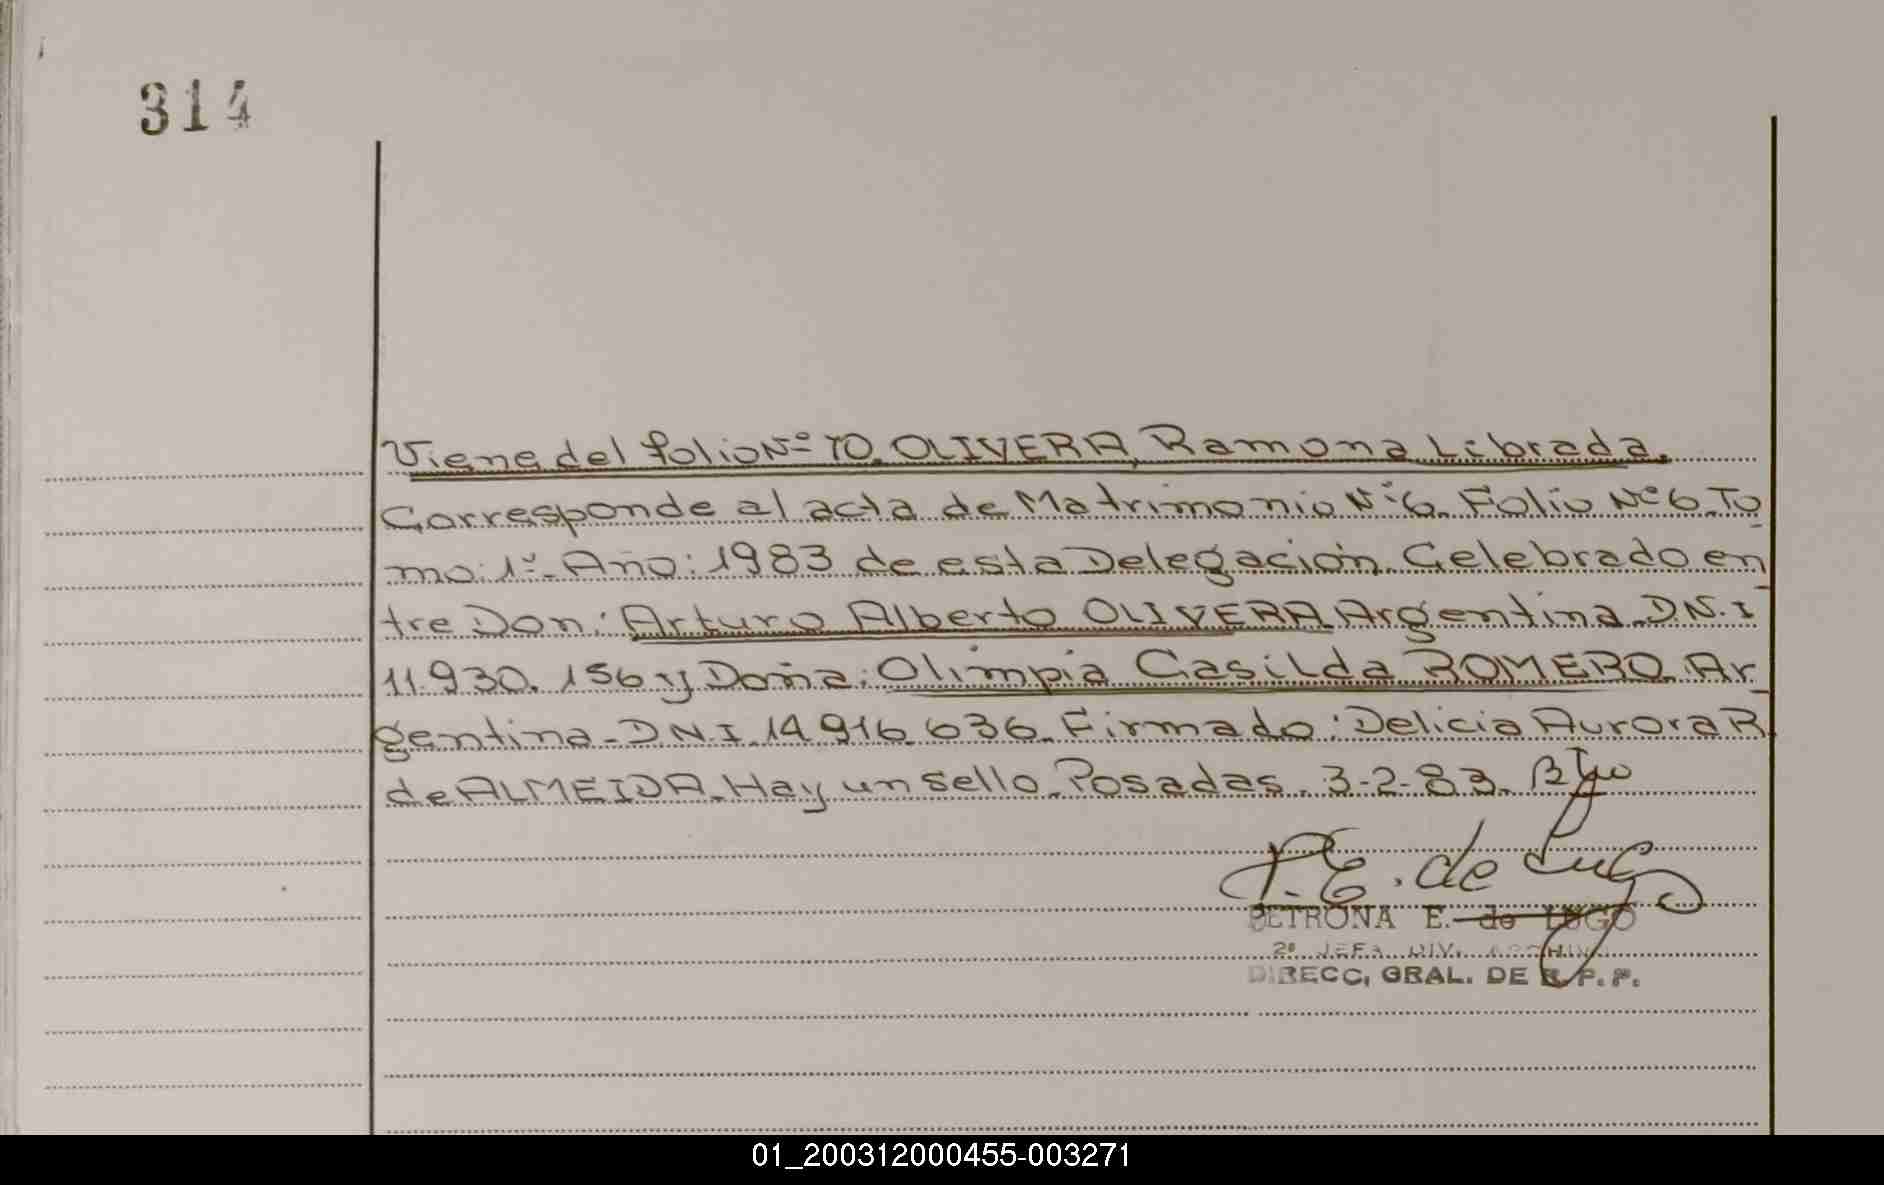 314
Viene del folio Nº 70. OLIVERA, Ramona Librada.
Corresponde al acta de Matrimonio Nº 6. Folio Nº 6. To
mo: 1º. Año: 1983 de esta Delegación. Celebrado en
tre Don: Arturo Alberto OLIVERA. Argentina. D.N.I
11.930.156 y Doña: Olimpia Casilda ROMERO. Ar
gentina. D.N.I. 14.916.636. Firmado: Delicia Aurora R.
de ALMEIDA. Hay un sello. Posadas. 3-2-83.
P.E. de Lugo
PETRONA E. de LUGO
2º JEFA DIV. ARCHIVO
DIRECC, GRAL. DE R. P. P.
01_200312000455-003271